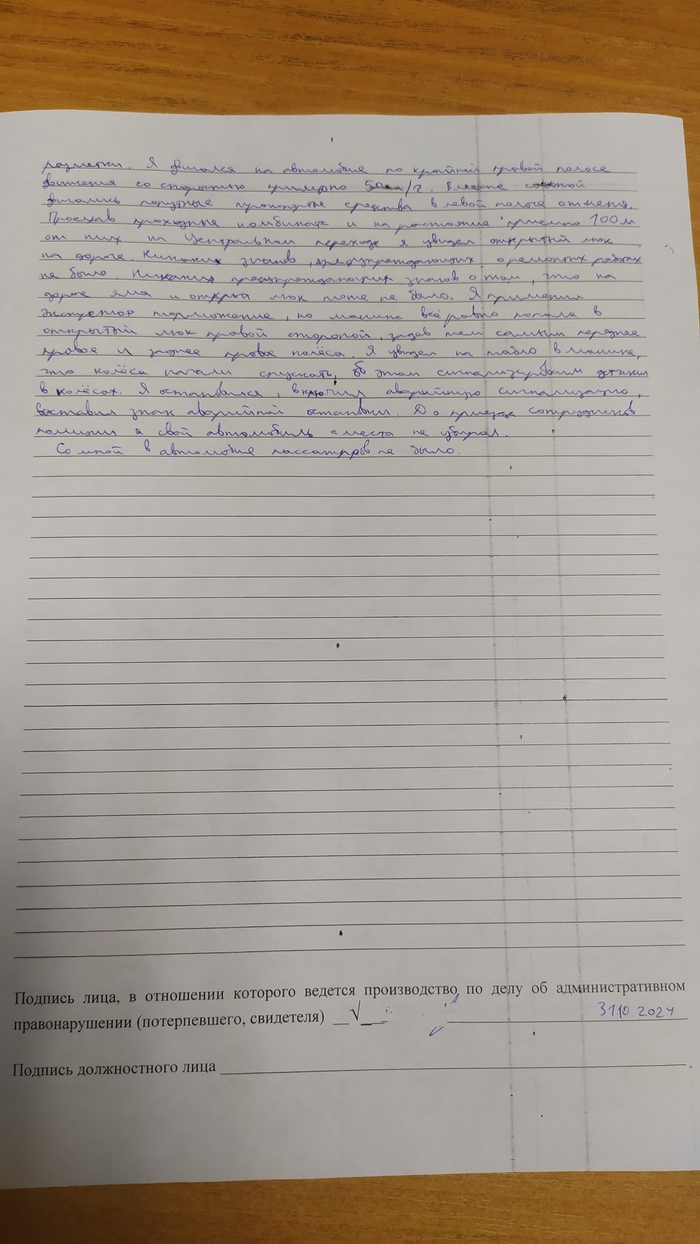 разметки. Я двигался на автомобиле по крайней правой полосе
движения со скоростью примерно 50км/ч. В
двигались попутные транспортные средства в левой полосе от меня.
Проехав проходные комбината и на расстоянии примерно 100м
от них на Центральном переходе я увидел открытый люк
на дороге. Никаких знаков, предупреждающих о ремонтных работах
не было. Никаких предупреждающих знаков о том, что на
дороге яма и открытый люк тоже не было. Я применил
экстренное торможение, но машина всё равно попала в
открытый люк правой стороной, задев тем самым переднее
правое и заднее правое колёса. Я увидел на табло в машине,
что колёса начали спускать, об этом сигнализировали датчики
в колёсах. Я остановился, включил аварийную сигнализацию,
выставил знак аварийной остановки. До приезда сотрудников
полиции я свой автомобиль с места не убирал.
Со мной в автомобиле пассажиров не было.
Подпись лица, в отношении которого ведется производство по делу об административном
правонарушении (потерпевшего, свидетеля) __√__ 31.10.2024
Подпись должностного лица